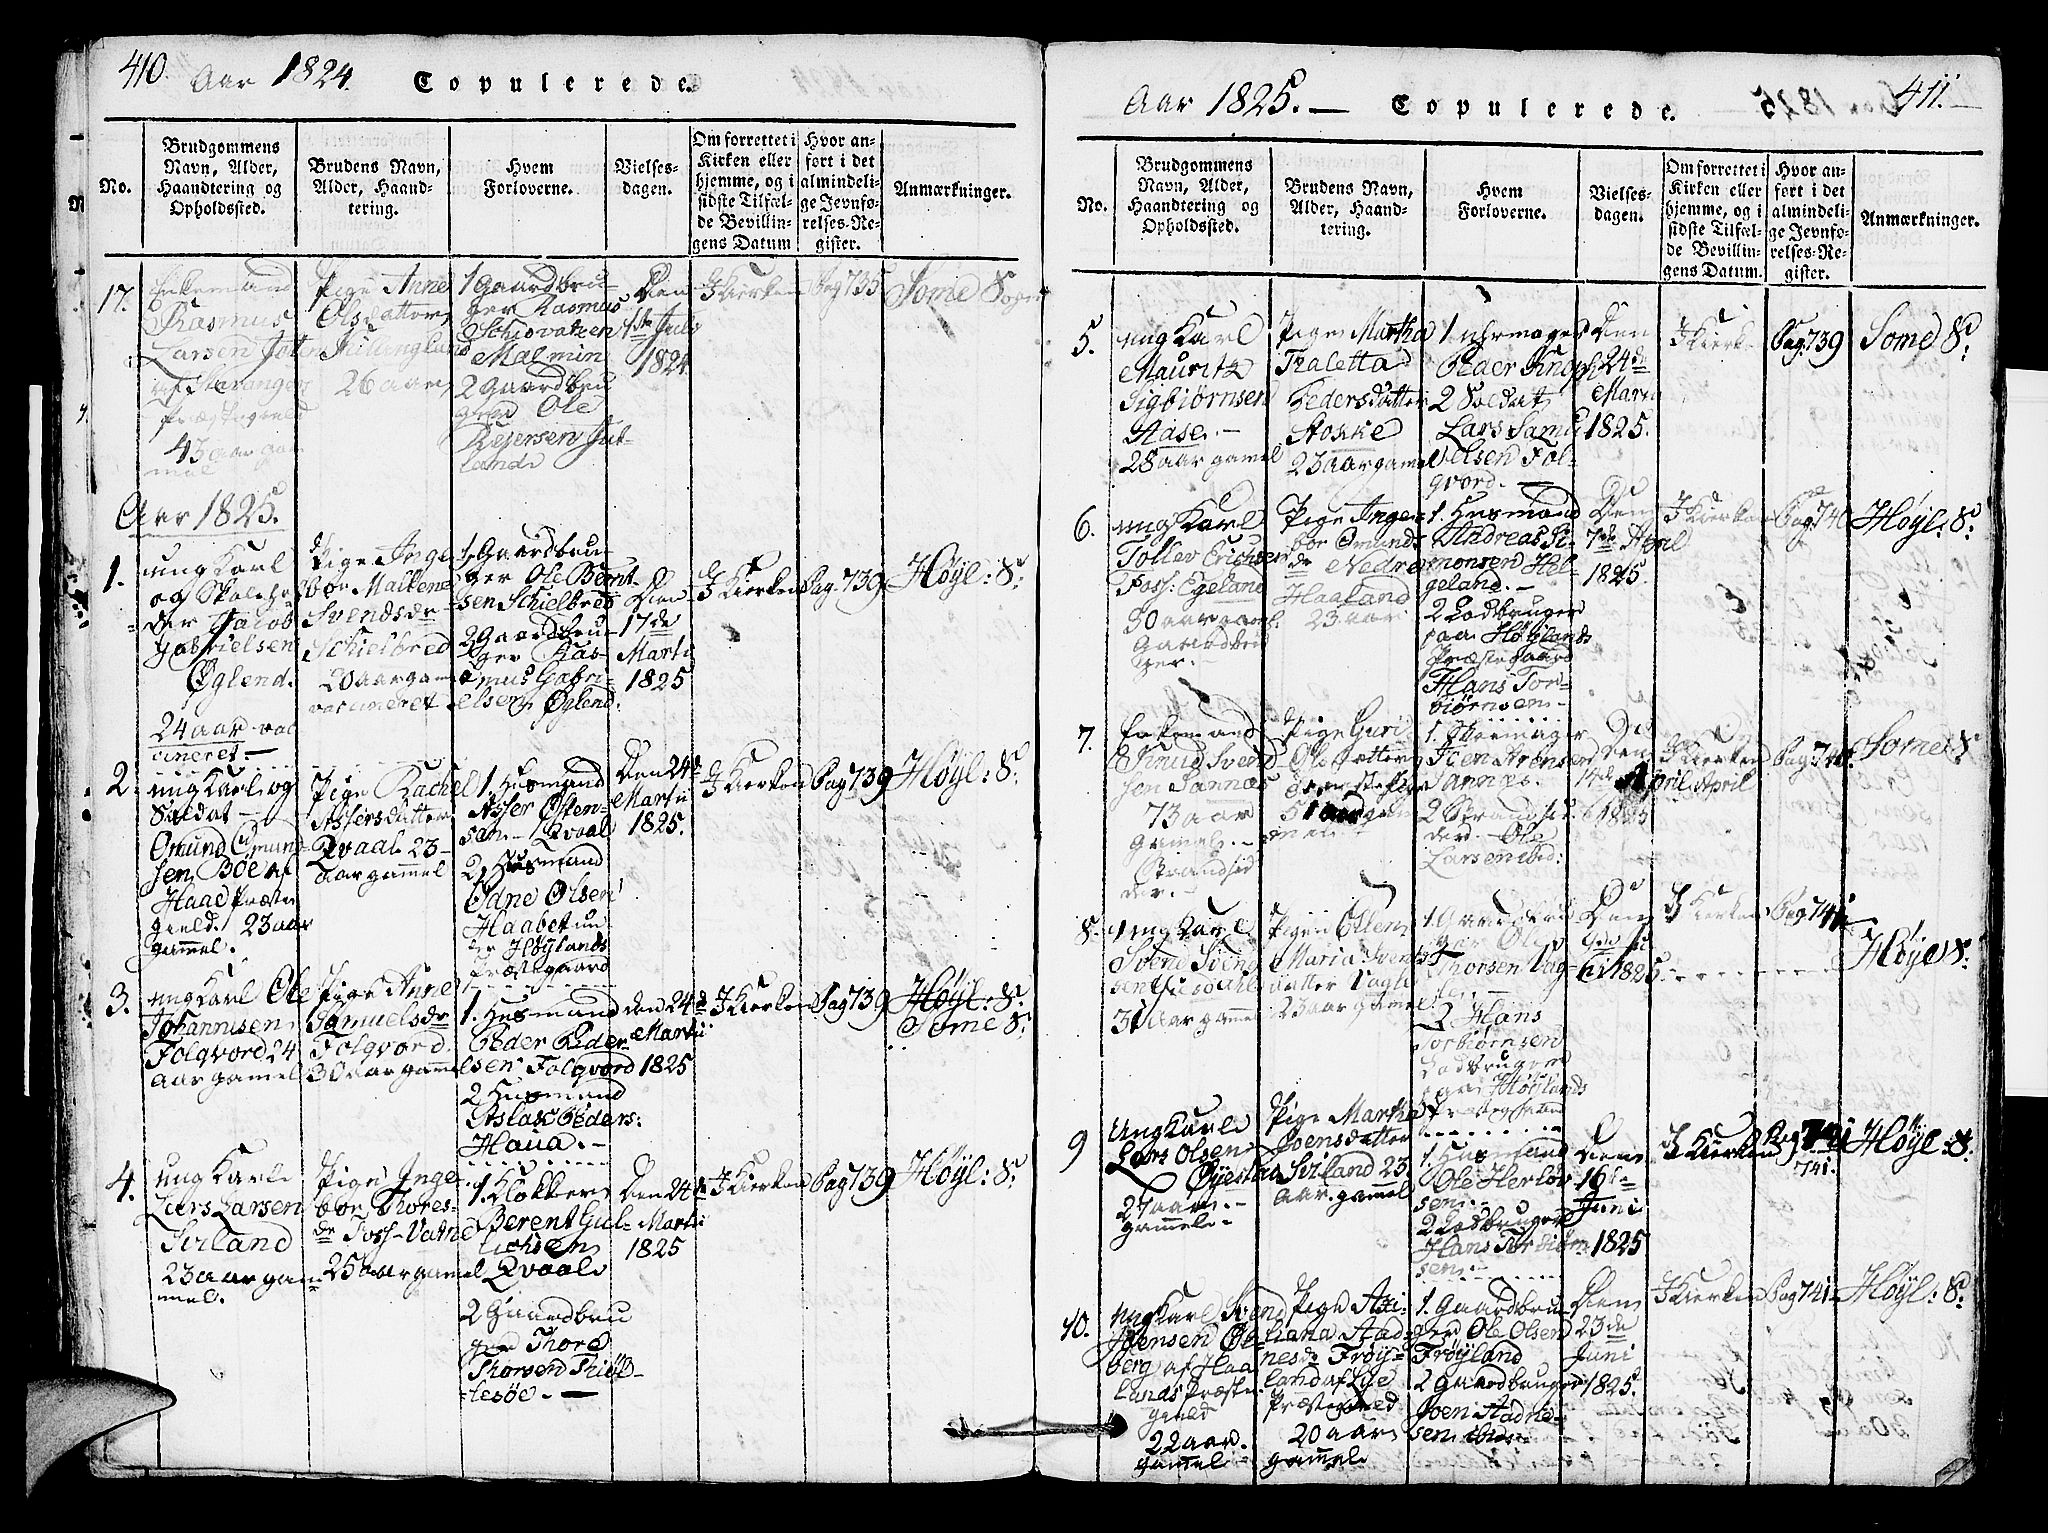 410. Aar 1824. Copulerede.
No.
Brudgommens Navn, Alder, Haandtering og Opholdssted.
Brudens Navn, Alder, Haandtering.
Hvem Forloverne.
Vielsesdagen.
Om forrettet i Kirken eller hjemme, og i sidste Tilfælde Bevillingens Datum
Hvor anført i det almindelige Jevnførelses-Register.
Anmærkninger.
17.
Enkemand
Rasmus
Larsen
af Stavanger
Præstegield
43 aar ga
mel
Pige Anne
Olsdatter
26 aar
1 Gaardbru
ger Rasmus
Malmin
2 Gaardbru
ger Ole
Reiersen Jut
land
Den
1ste Juli
1824
I Kierken
Pag 735
Some S
Aar 1825.
1.
ung Karl
og Skoleho
der Jacob
Gabrielsen
Øglend.
24 aar vac
cineret
Pige Inge
bor Malkene
Svendsdr
Schielbred
20 aar gam
vaccineret
1. Gaardbru
ger Ole Bernt
sen Schielbred
2 Gaardbru
ger Ras-
mus Gabri-
elsen Øglend.
Den
17de
Martii
1825
I Kierken
Pag. 739
Høyl: S:
2.
ung Karl og
Soldat
Omund Omund
sen Bøe af
Haae Præste
gield. 23 aar
gammel.
Pige Rachel
Assersdatter
Qvaale 23
aar gammel
1. Husmand
Asser Osten-
sen Qvaal
2. Husmand
Odne Olsen
Haabet un
der Høylands
Præstegaard
Den 24de
Martii
1825.
I Kierken
Pag 739
Høyl: S:
3.
ung Karl Ole
Johannisen
Folqvord 24
aar gamel
Pige Anne
Samuelsdr
Folqvord.
30 aar gamel
1. Husmand
Peder Peder-
sen Folqvord
2 Husmand
Aslak Peders:
Haua.
den 24de
Martii
1825
I Kierken
Pag 739
Høyl: S:
Some S:
4.
ung Karl
Lars Larsen
Sirland
23 aar gam
mel.
Pige Inge
bor Thores-
dr Foss-Vatne
25 aar gamel
1. Klokker
Berent Gul-
lichsen
Qvaale
2 Gaardbru
ger Thore
Thorsen Thiøt-
tesøe.
Den 24de
Martii
1825
I Kierken
Pag 739
Høyl: S:
Aar 1825. Copulerede. 411.
No.
Brudgommens Navn, Alder, Haandtering og Opholdssted.
Brudens Navn, Alder, Haandtering.
Hvem Forloverne.
Vielsesdagen.
Om forrettet i Kirken eller hjemme, og i sidste Tilfælde Bevillingens Datum.
Hvor anført i det almindelige Jevnførelses-Register.
Anmærkninger.
5.
ung Karl
Mauritz
Sigbiørnsen
Aase.
28 aar gamel
Pige Martha
Traletta
Pedersdatter
Stokke
23 aar gamel
1 uhrmager
Peder Knoph
2 Soldat
Lars Samu
elsen Fol-
qvord.
Den
24de
Martii
1825.
I Kierke
Pag. 739
Some S:
6.
ung Karl
Tollev Erichsen
Foss: Egeland
30 aar gam.
Gaardbru
ger.
Pige Inge-
bor Omunds
dr Nedre
Haaland
23 aar
1. Husmand
Andreas Si-
monsen Hel-
geland.
2 Lodbruger
paa Høylands
Præstegaard
Hans Tor-
biørnsen
Den
7de April
1825
I Kierken
Pag 740
Høyl: S:
7.
Enkemand
Knud Svend
sen Sannæs
73 aar
gamel.
Strandsid
der.
Pige Guri
Olsdatter
51 aar gam
mel
1. Skomager
Sannæs.
2 Strandsid
der Ole
Larsen ibid:
Den
14de April
1825
I Kierken
April
Pag 740
Some S
8.
ung Karl
Svend Svend
sen Lusdahl
31 aar gammel
Pigen Ellen
Maria Svends
datter Vagle
23 aar gamel
1. Gaardbru
ger Ole
Thorsen Vag-
le.
2 Hans
Torbiørnsen
Lodbruger
paa Høylands
Præstegaard
Den
9de Ju
ni 1825.
I Kierken
Pag. 741
Høyl S:
9
ung Karl
Lars Olsen
Øyestad
27 aar
gammel.
Pige Martha
Joensdatter
Sirland 23
aar gammel
1. Husmand
Ole Herlov
sen
2 Lodbruger
Hans Torbiørn
sen
Den
16de
Juni
1825
I Kierken
Pag 741
741.
Høyl: S:
10.
ung Karl Svend
Joensen
berg af Haa
lands Præste
gield
22 aar.
gamel
Pige Axi-
liana Aad-
nesdr Frøy-
land af Lye
Præstegield
20 aar
gammel
1. Gaardbru
ger Ole Olsen
Frøyland
2 Gaardbruger
Joen Aadne-
sen ibid.
Den
23de
Juni
1825.
I Kierken
Pag 741.
Høyl: S: